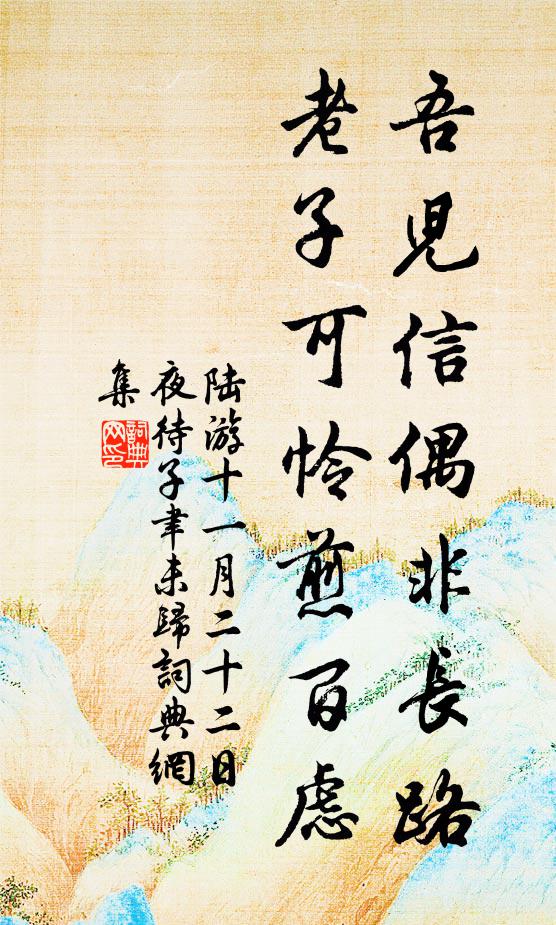 吾兒信偶非長路
老子可怜煎百慮
陆游十一月二十二日
夜待子聿未歸詞典網
集
詞典
网印